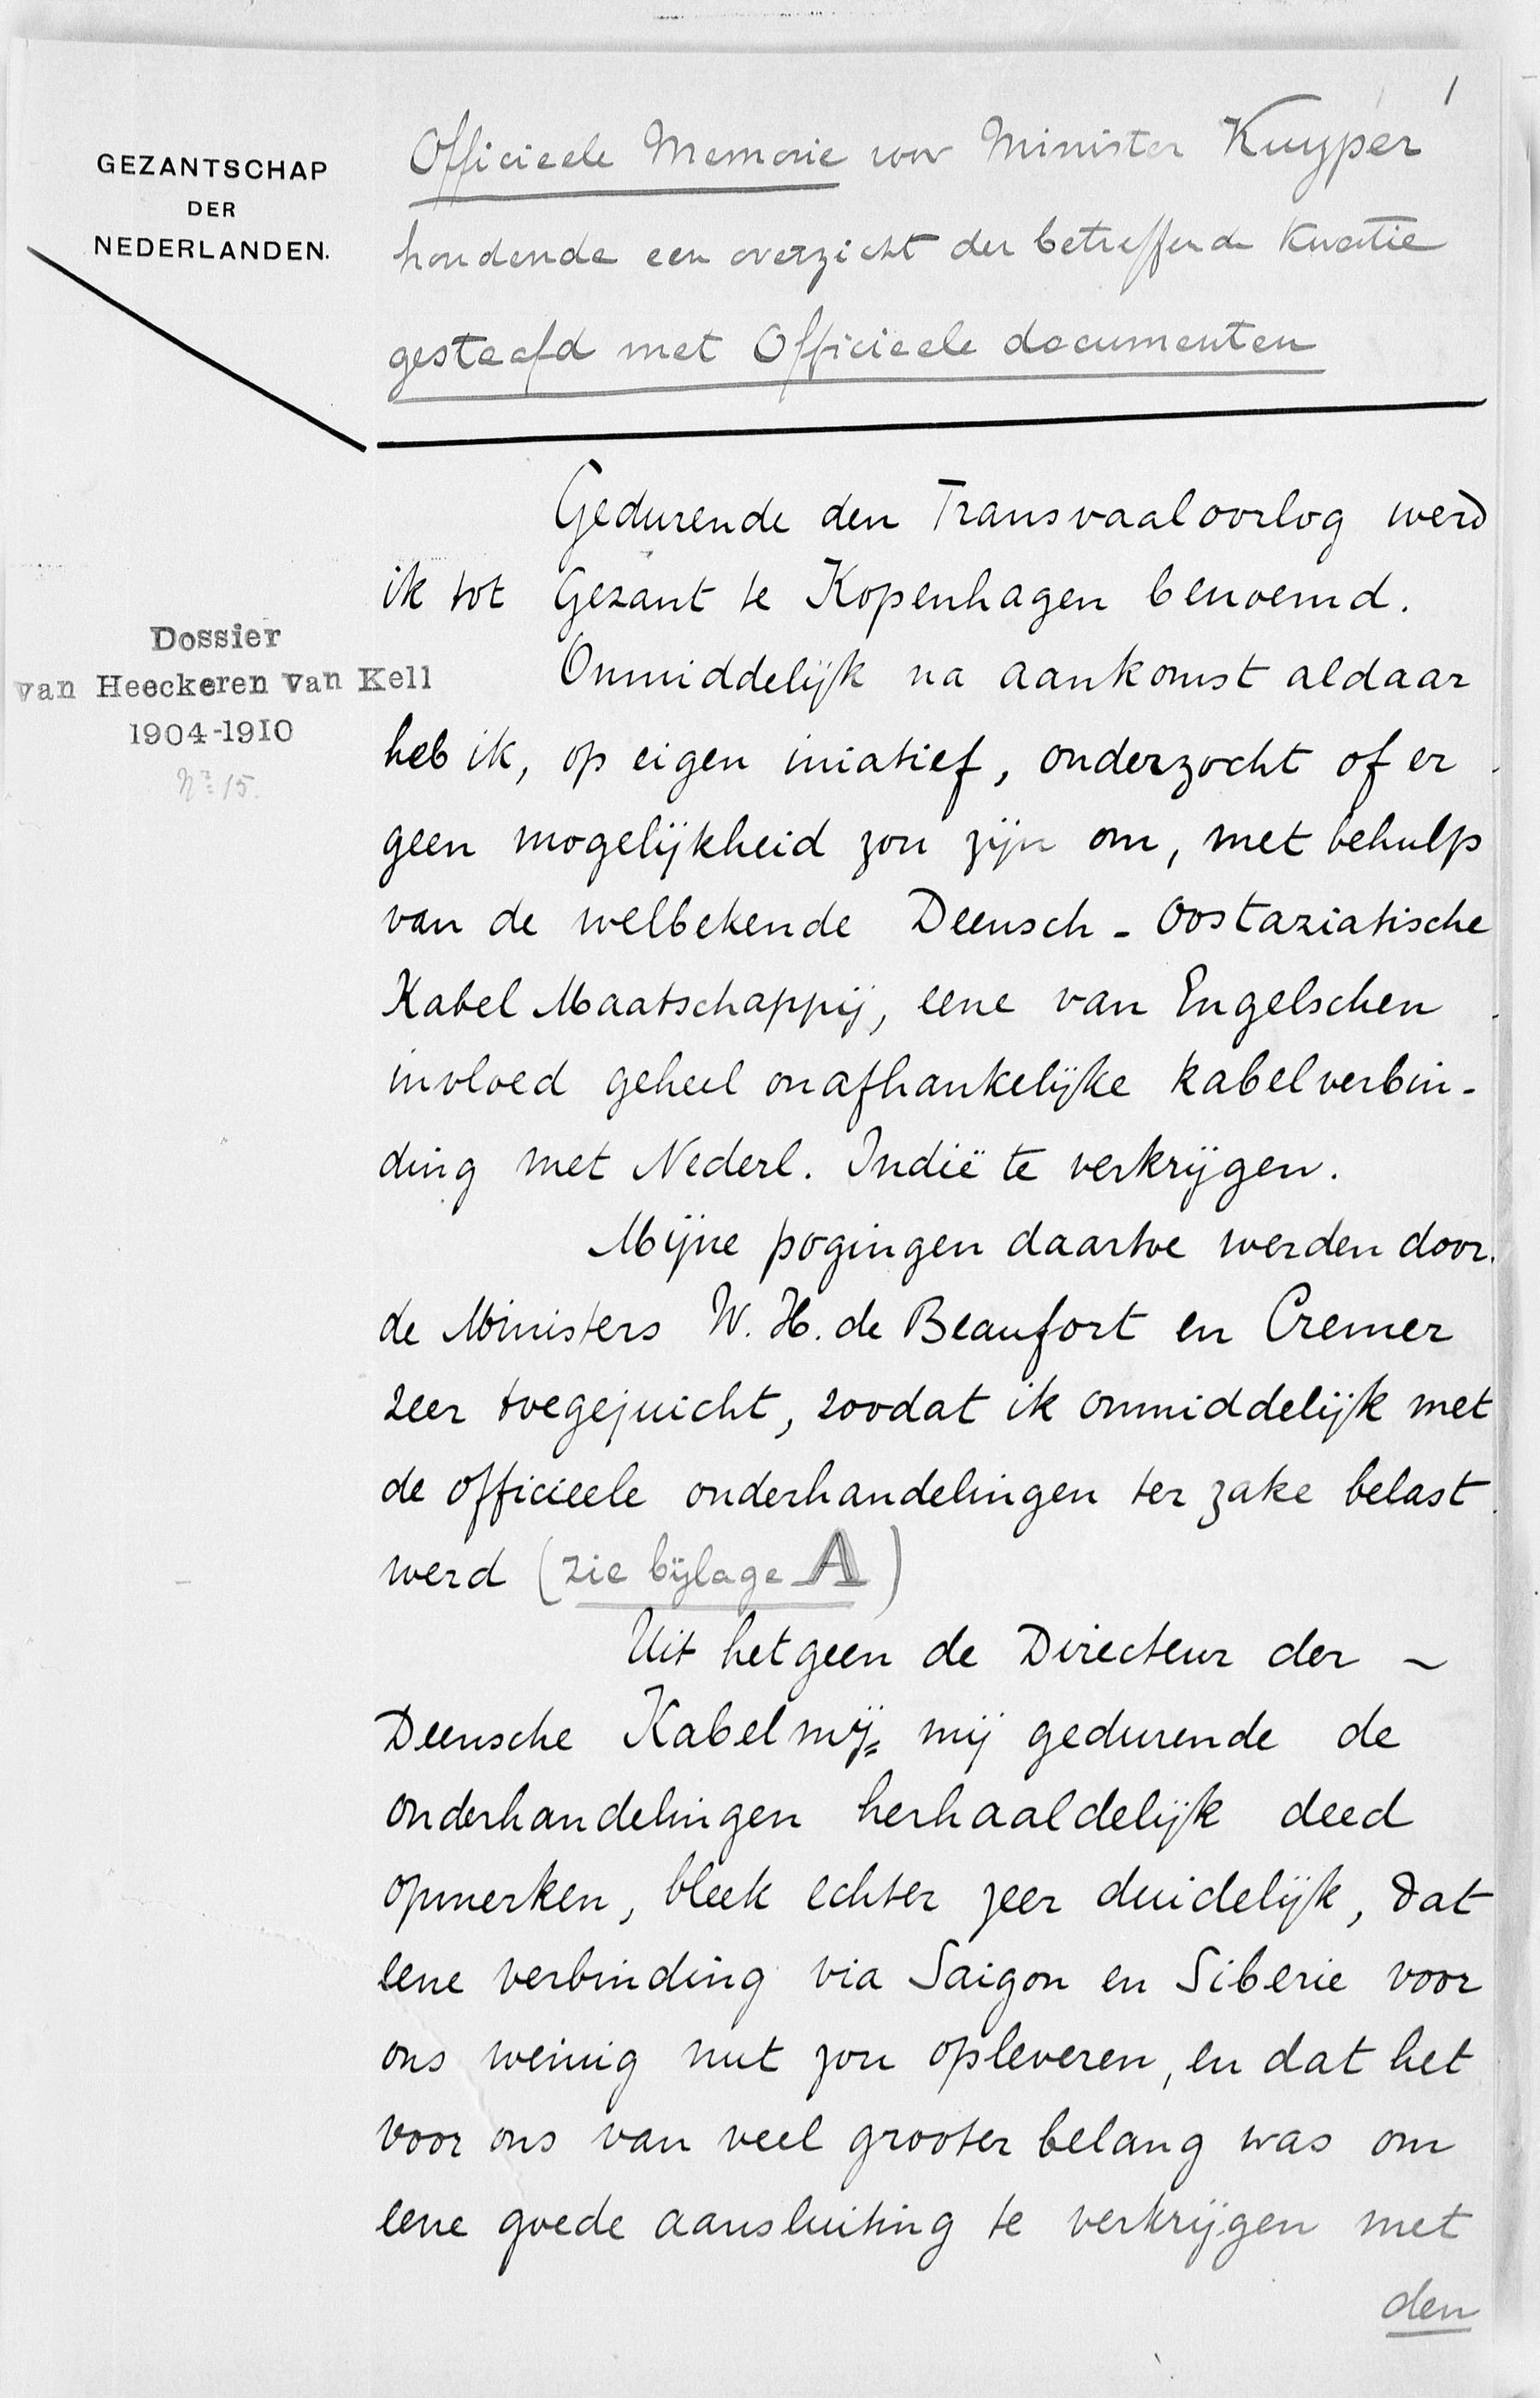 1
GEZANTSCHAP
DER
NEDERLANDEN.
Officieele Memorie voor Minister Kuyper
houdende een overzicht der betreffende kwestie
gestaafd met Officieele documenten
Gedurende den Transvaaloorlog werd
ik tot Gezant te Kopenhagen benoemd.
Dossier
van Heeckeren van Kell
1904-1910
No 15.
Onmiddelijk na aankomst aldaar
heb ik, op eigen iniatief, onderzocht of er
geen mogelijkheid zou zijn om, met behulp
van de welbekende Deensch - Oostaziatische
Kabel Maatschappij, eene van Engelschen
invloed geheel onafhankelijke kabelverbin-
ding met Nederl. Indië te verkrijgen.
Mijne pogingen daartoe werden door
de Ministers W. H. de Beaufort en Cremer
zeer toegejuicht, zoodat ik onmiddelijk met
de officieele onderhandelingen ter zake belast
werd (zie bijlage A)
Uit hetgeen de Directeur der ~
Deensche Kabelmij= mij gedurende de
onderhandelingen herhaaldelijk deed
opmerken, bleek echter zeer duidelijk, dat
eene verbinding via Saigon en Siberie voor
ons weinig nut zou opleveren, en dat het
voor ons van veel grooter belang was om
eene goede aansluiting te verkrijgen met
den